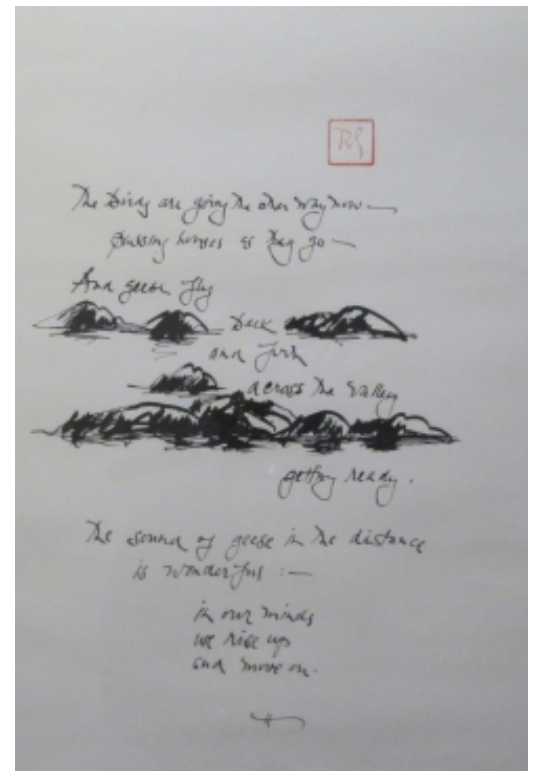 The Birds are going the other way now —
passing houses as they go —
And geese fly
back
and forth
across the valley
getting ready.
The sound of geese in the distance
is wonderful : —
in our minds
we rise up
and move on.